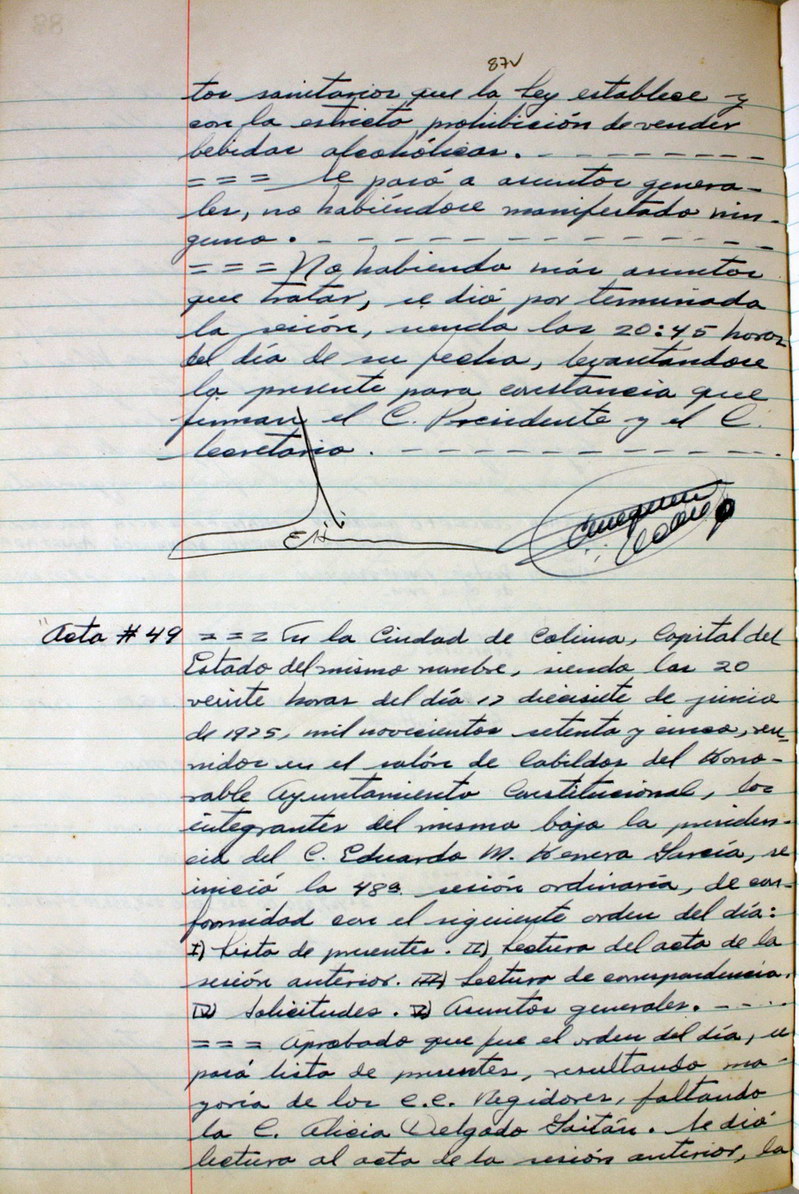 87v
tos sanitarios que la ley establece y
con la estricta prohibición de vender
bebidas alcohólicas. - - - - - - - - -
= = = Se pasó a asuntos genera-
les, no habiéndose manifestado nin-
guno. - - - - - - - - - - - - - -
= = = No habiendo más asuntos
que tratar, se dió por terminada
la sesión, siendo las 20:45 horas
del día de su fecha, levantándose
la presente para constancia que
firman el C. Presidente y el C.
Secretario. - - - - - - - - - - - -.
Acta # 49 = = = En la Ciudad de Colima, Capital del
Estado del mismo nombre, siendo las 20
veinte horas del día 17 diecisiete de junio
de 1975, mil novecientos setenta y cinco, reu-
nidos en el salón de Cabildos del Hono-
rable Ayuntamiento Constitucional, los
integrantes del mismo bajo la presiden-
cia del C. Eduardo M. Herrera García, se
inició la 48a sesión ordinaria, de con-
formidad con el siguiente orden del día:
I) Lista de presentes. II) Lectura del acta de la
sesión anterior. III) Lectura de correspondencia.
IV) Solicitudes. V) Asuntos generales. - - - -
= = = Aprobado que fue el orden del día, se
pasó lista de presentes, resultando ma-
yoría de los C.C. Regidores, faltando
la C. Alicia Delgado Gaitán. Se dió
lectura al acta de la sesión anterior, la